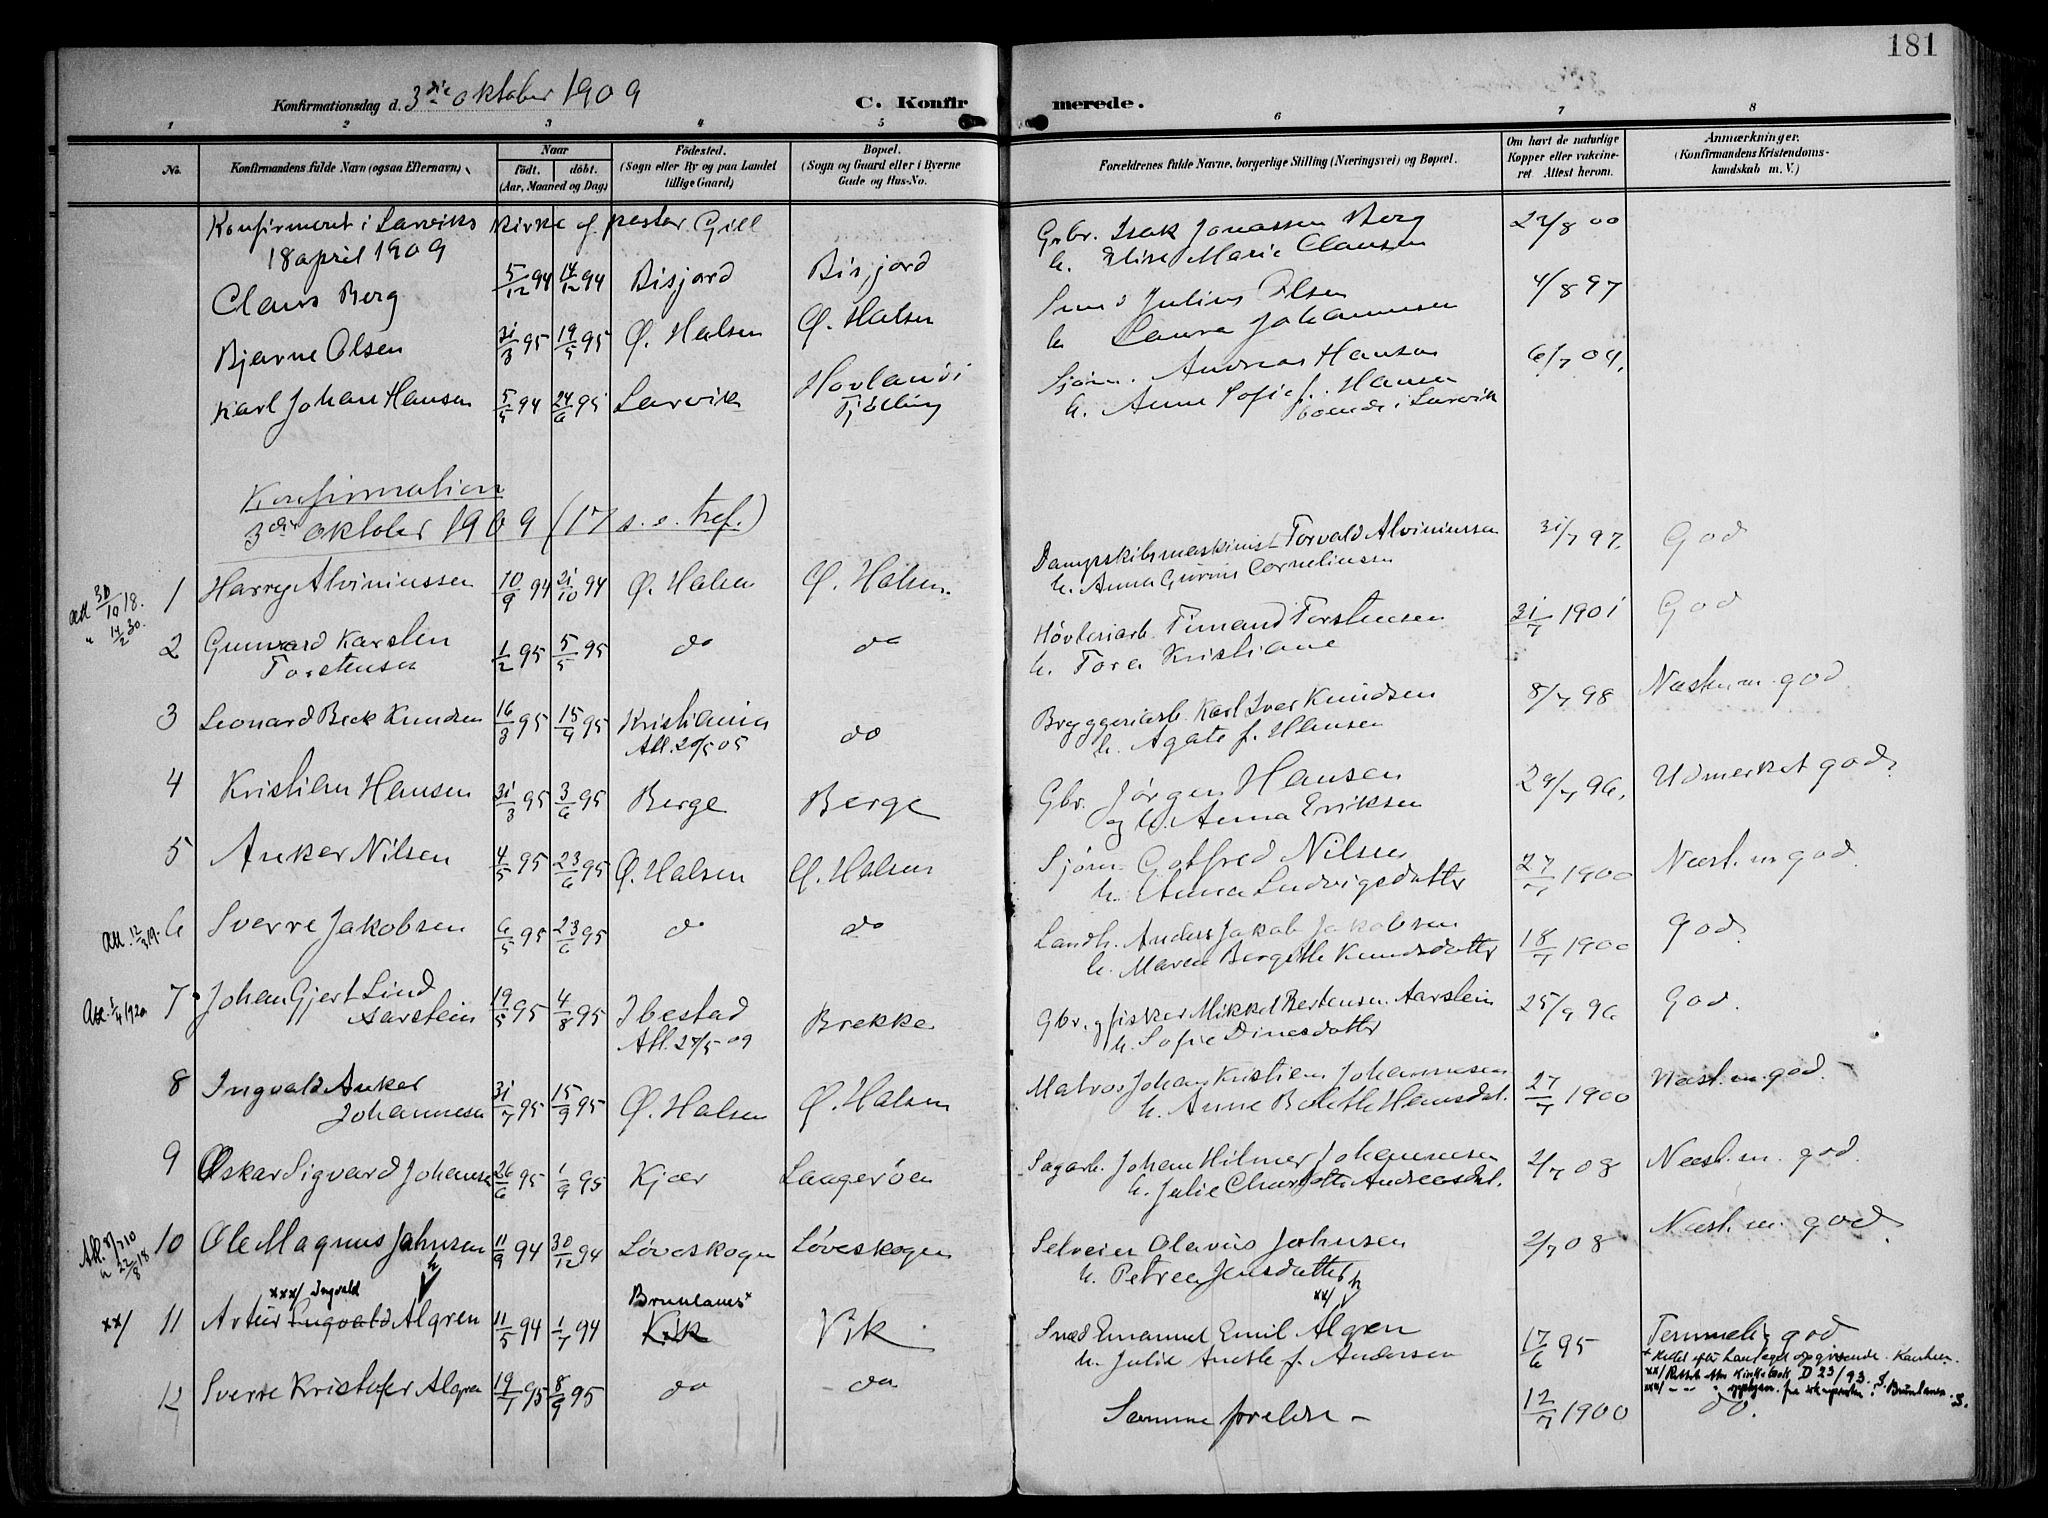 181
Konfirmationsdag d. 3die oktober 1909
C. Konfirmerede.
1 2 3 4 5 6 7 8
No.
Konfirmandens fulde Navn (ogsaa Efternavn).
Naar
født. døbt.
(Aar, Maaned og Dag)
Fødested.
(Sogn eller By og paa Landet
tillige Gaard)
Bopæl.
(Sogn og Gaard eller i Byerne
Gade og Hus-No.
Forældrenes fulde Navne, borgerlige Stilling (Næringsvei) og Bopæl.
Om havt de naturlige
Kopper eller vakcine-
ret Attest herom.
Anmærkninger.
(Konfirmandens Kristendoms-
kundskab m. V.)
Konfirmeret i Larviks kirke af pastor Gill
18 april 1909
Claus Berg 5/12 94 14/12 94 Bisjord Bisjord Gbr. Isak Jonassen Berg
h. Elise Marie Clausen
Bjarne Olsen 31/3 95 19/5 95 Ø. Halsen Ø. Halsen Julius Olsen 4/8 97
h. Laura Johannesen
Karl Johan Hansen 5/5 94 24/6 95 Larvik Hovland i Sjøm. Andreas Hansen 6/7 04.
Tjølling
h. Anne Sofie f. Hansen
boende i Larvik
Konfirmation
3die oktober 1909 (17 s. e. tref.)
att 30/10 18.
" 14/2 30.
1 Harry Alviniussen 10/9 94 21/10 94 Ø. Halsen Ø. Halsen. Dampskibsmaskinist Torvald Alviniussen 31/7 97. God
h. Anna Corneliusen
2 Gunvard Karsten 1/2 95 5/5 95 do do Høvleriarb. Torstensen 31/7 1901 God
Torstensen
h. Tora Kristiane
3 Leonard Beck Knudsen 16/3 95 15/4 95 Kristiania do Bryggeriarb. Karl Iver Knudsen 8/7 98 Næsten m. god
Att. 20/5 05
h. Agate f. Hansen
4 Kristian Hansen 31/3 95 3/6 95 Berge Berge Gbr. Jørgen Hansen 29/7 96. Udmerket god.
og h. Anna Eriksen
5 Anker Nilsen 4/5 95 23/6 95 Ø. Halsen Ø. Halsen Sjøm. Gotfred Nilsen 27/7 1900 Næst. m god
h. Anna Ludvigsdatter
att. 12/3 19.
6 Sverre Jakobsen 6/5 95 23/6 95 do do Landh. Anders Jakob Jakobsen 18/7 1900 God.
h. Maren Bergitte Knudsdatter
7 Johan Gjert Lind 19/5 95 4/8 95 Ibestad Brekke Gbr. og fisker Mikkel Aarstein 25/9 96 God.
Aarstein
Att. 27/5 09
h. Sofie Dinesdatter
8 Ingvald Anker 31/7 95 15/9 95 Ø. Halsen Ø. Halsen Matros Johan Kristian Johannesen 27/7 1900 Næst. m. god.
Johannesen
h. Anne Bolette Hansdat.
9 Oskar Sigvard Johansen 26/6 95 1/9 95 Kjær Laagerøen Sagarb. Johan Hilmer Johannesen 2/7 08 Næst. m. god.
h. Julie Charlotte Andreasdat.
10 Ole Magnus Johnsen 11/9 94 30/12 94 Løveskogen Løveskogen Selveier Olavus Johnsen 2/7 08 Næst. m. god.
" 22/8 18
h. Petrea Jensdatter
xxx/ Ingvald h Brunlanes x xx/ h
xx/ 11 Artur Ingvald Algren 11/5 94 1/7 94 Vik Vik Emanuel Emil Algren 17/6 95 Temmelig god
h. Julie f. Andersen
12 Sverre Kristofer Algren 19/7 95 8/9 95 do do Samme forældre - 12/7 1900 do.